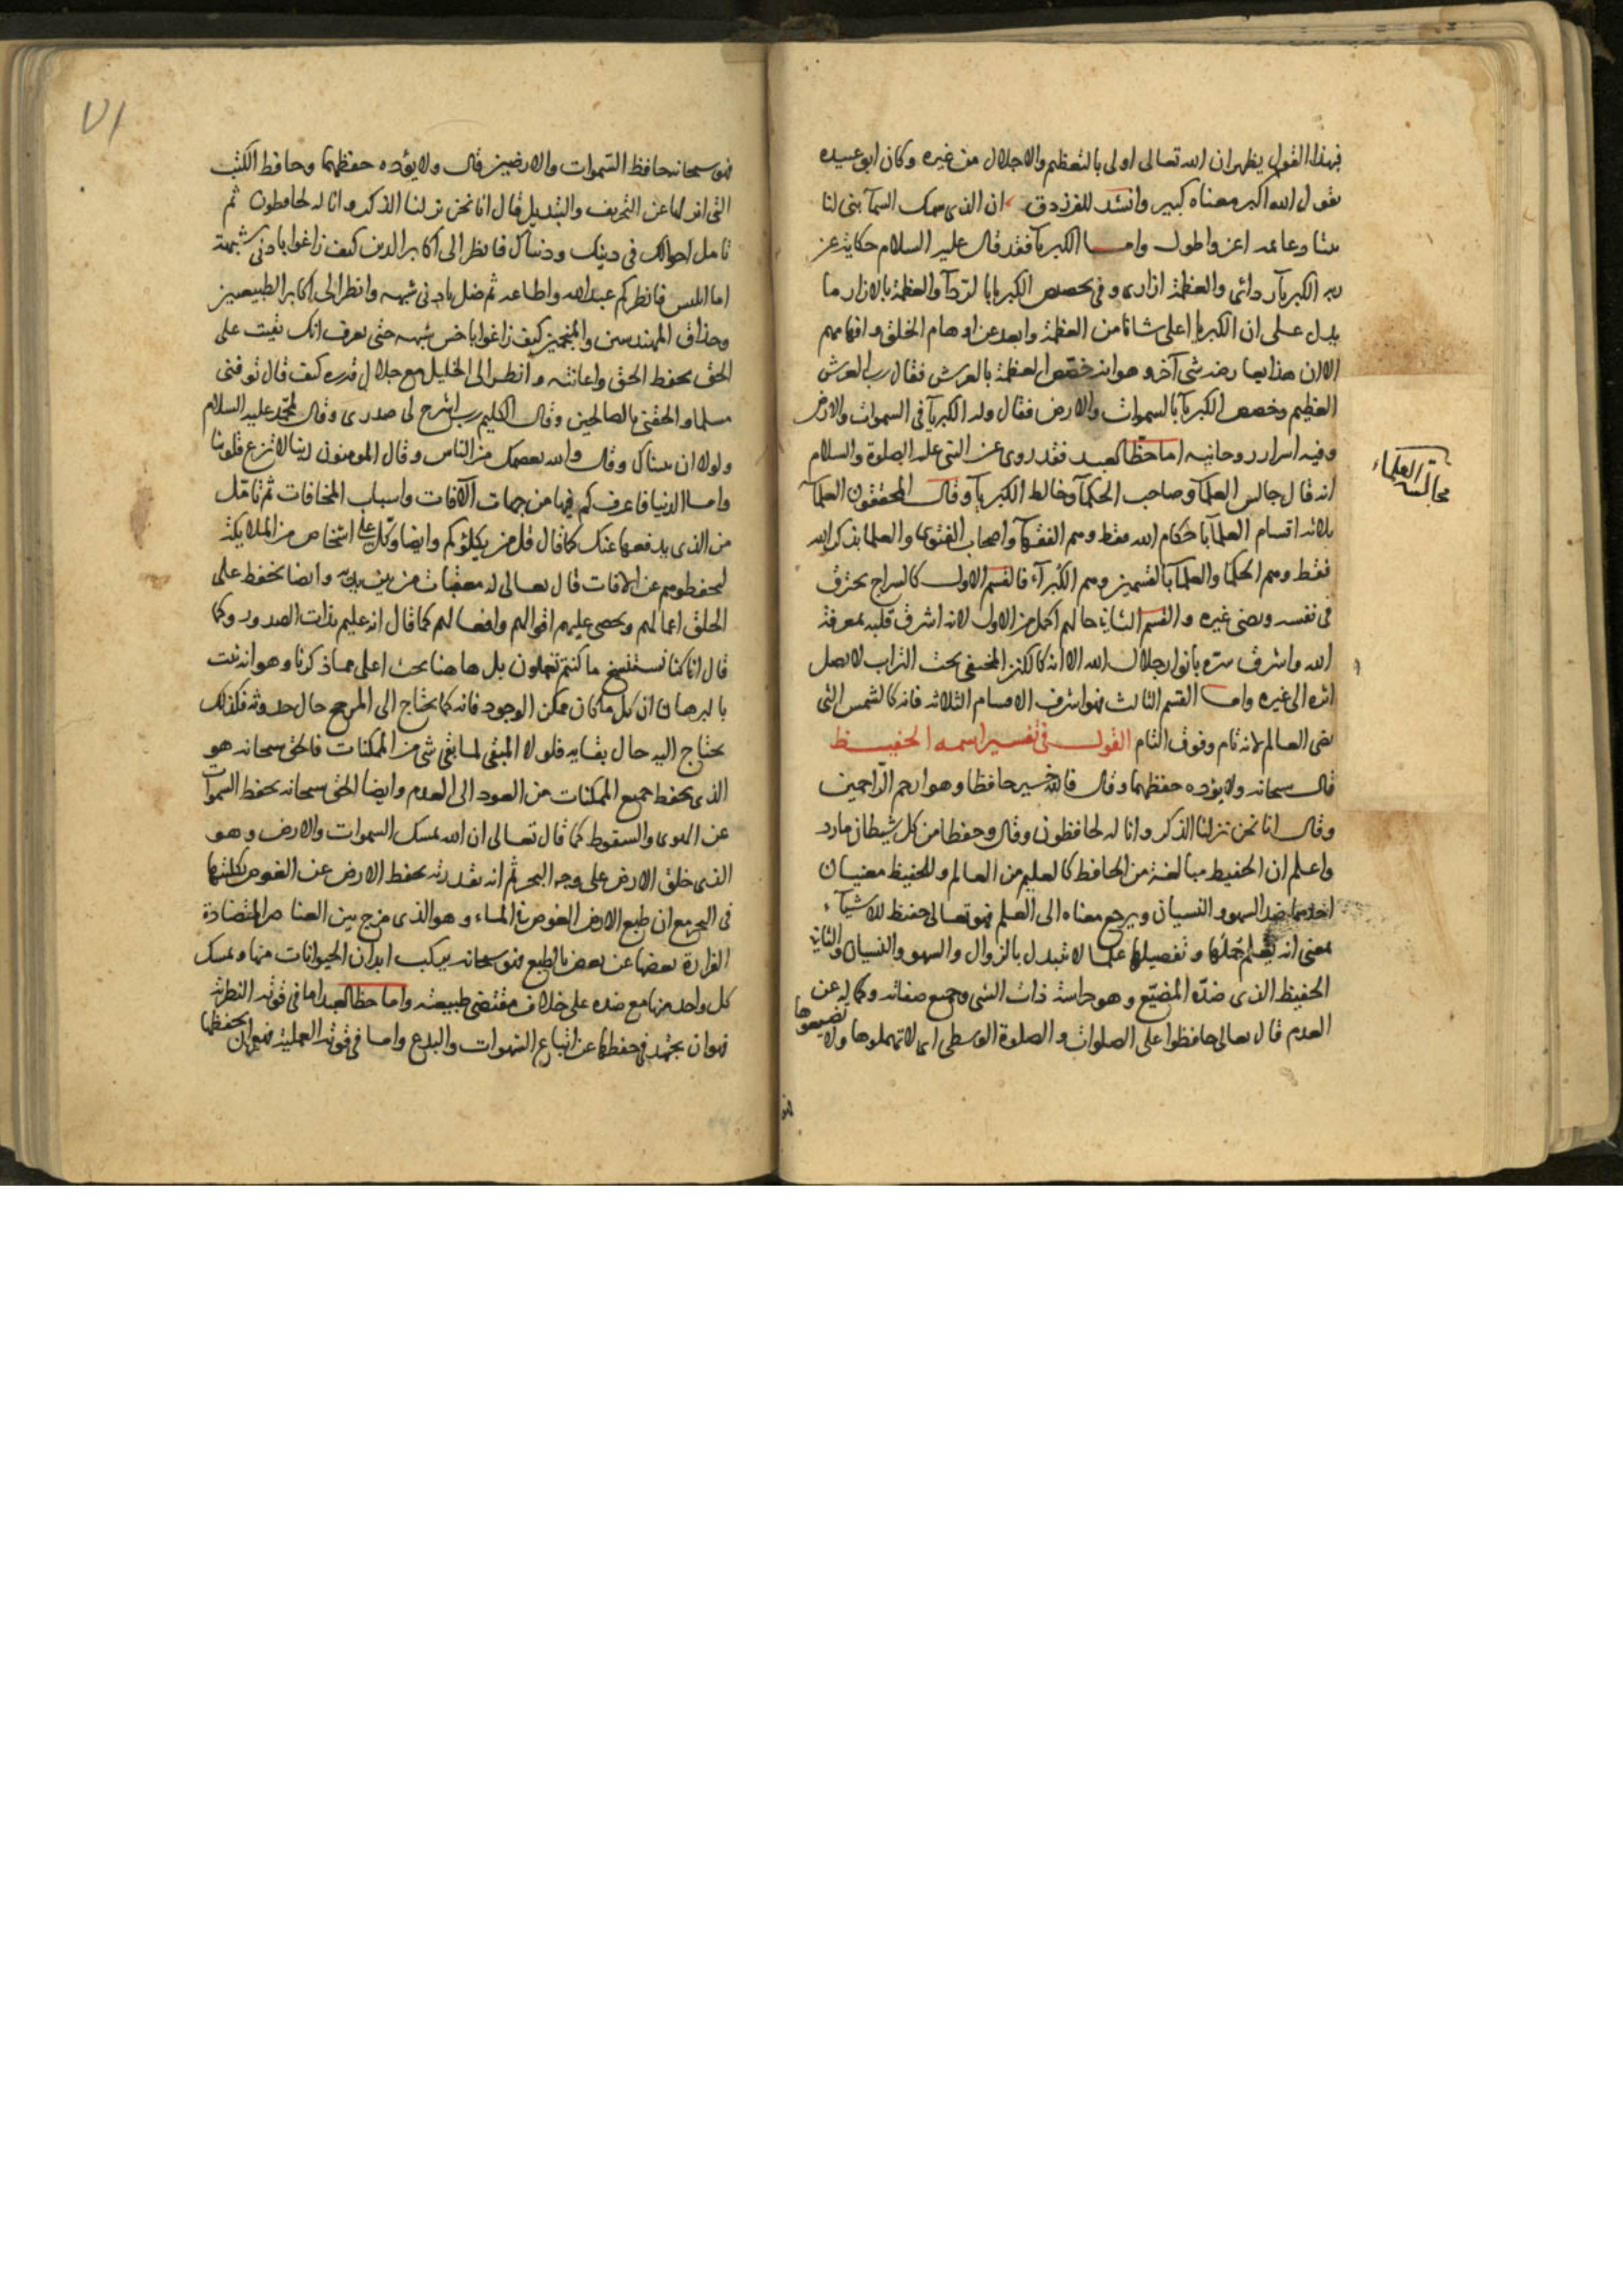 فبهذا القول يظهر ان الله تعالى اولى بالتعظيم والاجلال من غيره وكان ابو عبيده
يقول الله اكبر معناه كبير وانشد للفرزدق ان الذى سمك السمآ بنى لنا
بيتا دعائمه اعز واطول واما الكبريآ فقد قال عليه السلام حكاية عن
ربه الكبريآ ردائى والعظمة ازارى وفى تخصيص الكبريا بالردآ والعظمة بالازار ما
يدل على ان الكبريا اعلى شانا من العظمة وابعد عن اوهام الخلق وافهامهم
الا ان هذا يعارضه شئ آخر وهو انه خصص العظمة بالعرش فقال رب العرش
العظيم وخصص الكبريآ بالسموات والارض فقال وله الكبريآ فى السموات والارض
وفيه اسرار روحانيه اما حظ العبد فقد روى عن النبى عليه الصلوة والسلام
انه قال جالس العلمآ وصاحب الحكمآ وخالط الكبريآ وقال المحققون العلمآ
ثلاثه اقسام العلمآ باحكام الله فقط وهم الفقهآ واصحاب الفتوى والعلما بذكر الله
فقط وهم الحكما والعلمآ بالقسمين وهم الكبرآء فالقسم الاول كالسراج يحترق
فى نفسه ويضى غيره والقسم الثانى حالهم اكمل من الاول لانه اشرق قلبه بمعرفة
الله واشرق سره بانوار جلال الله الا انه كالكنز المخفى تحت التراب لا يصل
اثره الى غيره واما القسم الثالث فهو اشرف الاقسام الثلاثه فانه كالشمس التى
تضى العالم لانه تام وفوق التام القول فى تفسير اسمه الحفيظ
قال سبحانه ولا يؤده حفظهما وقال فالله خير حافظا وهو ارحم الراحمين
وقال انا نحن نزلنا الذكر وانا له لحافظون وقال وحفظا من كل شيطان مارد
واعلم ان الحفيظ مبالغة من الحافظ كالعليم من العالم وللحفيظ معنيان
احدهما ضد السهو والنسيان ويرجع معناه الى العلم فهو تعالى حفيظ للاشيآء
بمعنى انه يعلم جملها وتفصيلها علما لا يتبدل بالزوال والسهو والنسيان والثانى
الحفيظ الذى ضده المضيّع وهو حراسة ذات الشى وجميع صفاته وكماله عن
العدم قال تعالى حافظوا على الصلوات والصلوة الوسطى اى لا تهملوها ولا تضيعوها
مجالسة العلماء
فهو
٧١
فهو سبحانه حافظ السموات والارضين قال ولا يؤده حفظهما وحافظ الكتب
التى انزلها عن التحريف والتبديل قال انا نحن نزلنا الذكر وانا له لحافظون ثم
تامل احوالك فى دينك ودنياك فانظر الى اكابر الدين كيف زاغوا بادنى شبهة
اما ابليس فانظر كم عبد الله واطاعه ثم ضل بادنى شبهه وانظر الى اكابر الطبيعيين
وحذاق المهندسين والمنجمين كيف زاغوا باخس شبهه حتى تعرف انك بقيت على
الحق بحفظ الحق واعانته وانظر الى الخليل مع جلال قدره كيف قال توفنى
مسلما والحقنى بالصالحين وقال الكليم رب اشرح لى صدرى وقال لمحمد عليه السلام
ولولا ان ثبتناك وقال والله يعصمك من الناس وقال المومنون ربنا لا تزغ قلوبنا
واما الدنيا فاعرف كم فيها من جهات الآفات واسباب المخافات ثم تامل
من الذى يدفعها عنك كما قال قل من يكلؤكم وايضا وكل على اشخاص من الملايكة
ليحفظوهم عن الافات قال تعالى له معقبات من بين يديه وايضا يحفظ على
الخلق اعمالهم ويحصى عليهم اقوالهم وافعالهم كما قال انه عليم بذات الصدور وكما
قال انا كنا نستنسخ ما كنتم تعملون بل هاهنا بحث اعلى مما ذكرنا وهو انه ثبت
بالبرهان ان كل ما كان ممكن الوجود فانه كما يحتاج الى المرجح حال حدوثه فكذلك
يحتاج اليه حال بقايه فلولا المبقى لما بقى شى من الممكنات فالحق سبحانه هو
الذى يحفظ جميع الممكنات من العود الى العدم وايضا الحق سبحانه يحفظ السموات
عن الهوى والسقوط كما قال تعالى ان الله يمسك السموات والارض وهو
الذى خلق الارض على وجه البحر ثم انه بقدرته يحفظ الارض عن الغوص بكليتها
فى البحر مع ان طبع الارض الغوص فى الماء وهو الذى مزج بين العناصر المتضادة
الفرارة بعضها عن بعض بالطبع فهو سبحانه يركب ابدان الحيوانات منها ويمسك
كل واحد منها مع ضده على خلاف مقتضى طبيعته واما حظ العبد اما فى قوته النظرية
فهو ان يجتهد فى حفظها عن اتباع الشهوات والبدع واما فى قوته العملية فهو ان يحفظها